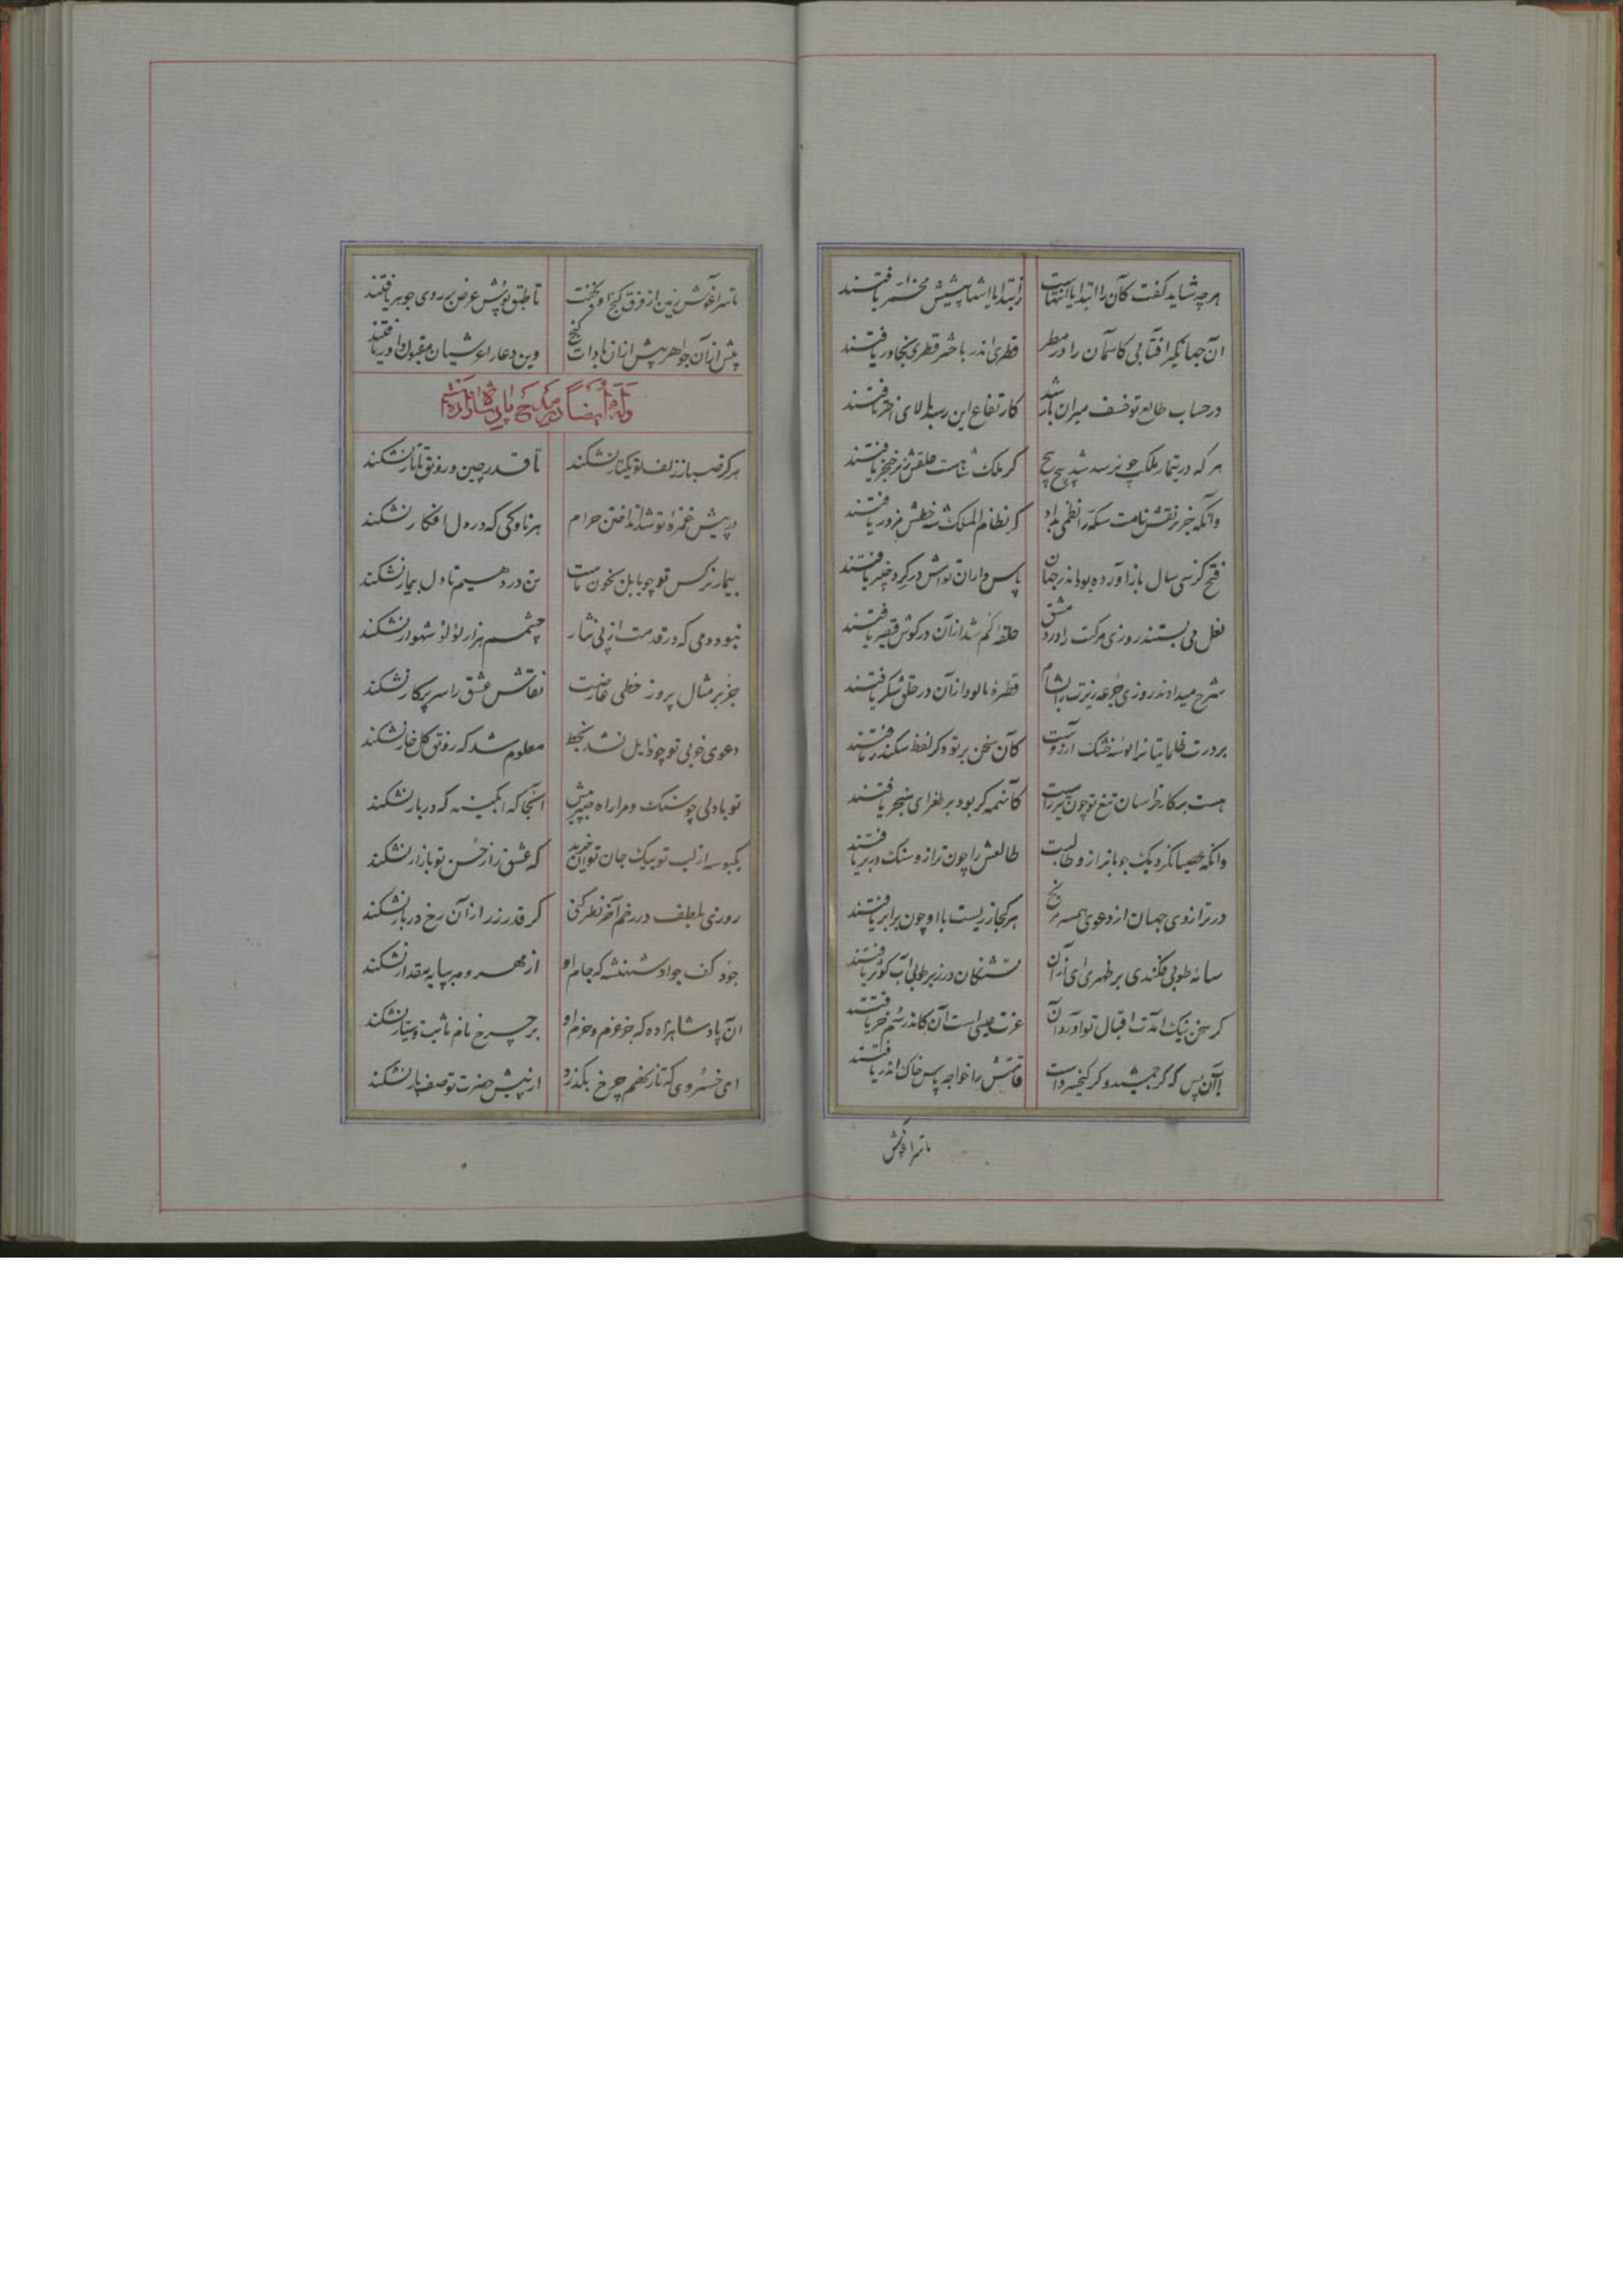 هرچه شاید گفت کآن را ابتدا یا انتهاست ز ابتدا یا انتها پیشش مختصر یافتند
آن جهانگیر آفتابی کاسمان را در مطر قطری اندر باختر قطری بخاور یافتند
در حساب طالع تو خسف میزان باشد کارتفاع این رسد بالای اختر یافتند
هر که در تیمار ملک چو بزسد شد پیچ پیچ گر ملک شاهست حلقش زیر خنجر یافتند
وانکه جز بر نقش نامت سکه را نظمی بداد گر نظام الملک شد خطش مزور یافتند
فتح کز سی سال باز آورده بود اندر جهان پاس داران نواش در گرد خیبر یافتند
نعل می بستند روزی مرکبت را در دمشق حلقه گم شد از آن در گوش قیصر یافتند
شرح میدادند روزی جرعه ریزت را بشام قطرهٔ پالود از آن در حلق شکر یافتند
بر درت ظلماتیانرا بوسه خشک آرزوست کآن سخن بر تو و گر لفظ سکندر یافتند
هست بر کار خراسان تیغ تو چون تیر راست کآنهمه کز بود بر طغرای سنجر یافتند
وانکه عصیانکرد یک جو با ترازو طالبت طالعش را چون ترازو سنگ در بر یافتند
در ترازوی جهان از دعوی همسر برنج هر کجا زریست با او چون برابر یافتند
سایه طوبی فکندی بر طهری ای از آن تشنگان در زیر طوبی آب کوثر یافتند
گر سخن نیک آمدت اقبال تو آورد آن عزت عیسی است آن کاندر سم خر یافتند
از آن پس که گر جمشید و گر کیخسرو است قامتش را خواجه پاس خاک اندر یافتند
تا سرآغوش
تا سرآغوش زمین از فرق گنج او بخت تا طبق پوش عرض بر روی جوهر یافتند
پیش از آن جواهر پیش از آن بادات گنج وین دعا را عرشیان مقبول داور یافتند
وله ایضا در مدح پادشاه زاده
هرگز صبا ز زلف تو یکتار نشکند تا قدر چین و رونق تاتار نشکند
در پیش غمزه تو شاد انداختن حرام هر ناوکی که در دل افکار نشکند
بیمار نرگس تو چو بابل بخون ماست تن در دهیم تا دل بیمار نشکند
نبود دمی که در قدمت از پی نثار چشمم هزار لؤلؤ شهوار نشکند
جز بر مثال پروز خطی عارضت نقاش عشق را سر پرگار نشکند
دعوی خوبی تو چو ذایل نشد بخط معلوم شد که رونق گل خار نشکند
تو با دلی چو سنگ و مرا راه پیش آنجا که آبگینه که در بار نشکند
یکبوسه از لب تو بیک جان توان خرید که عشق را ز حسن تو بازار نشکند
روزی بلطف در رخم آخر نظر کنی گر قدر زر از آن رخ دربار نشکند
جود کف جواد شهنشه که جام او از مهر و مه بپایه مقدار نشکند
آن پادشاهزاده که جز عزم و حزم او بر چرخ نام ثابت و سیار نشکند
ای خسروی که تارک نهم چرخ بگذرد از پیش حضرت تو صف بار نشکند